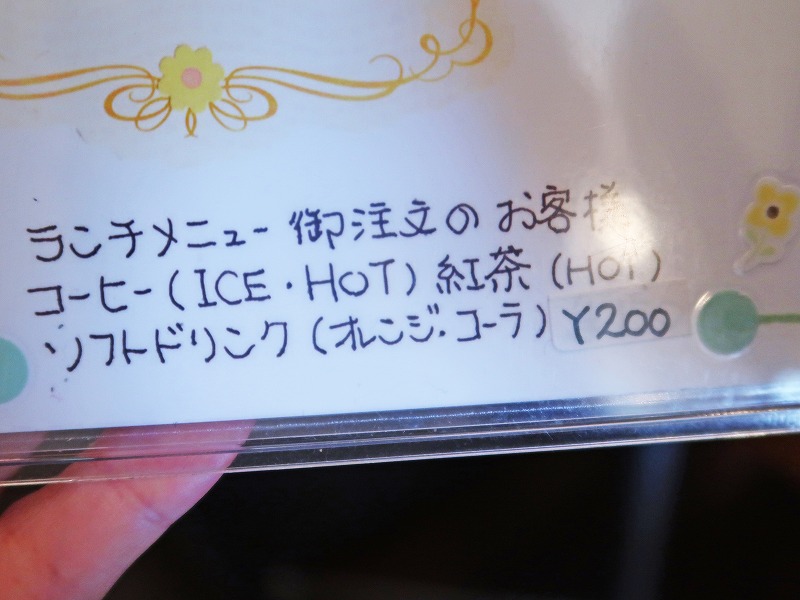 ランチメニュー 御注文の お客様
コーヒー(ICE・HOT) 紅茶 (HOT)
ソフトドリンク (オレンジ・コーラ) ¥200